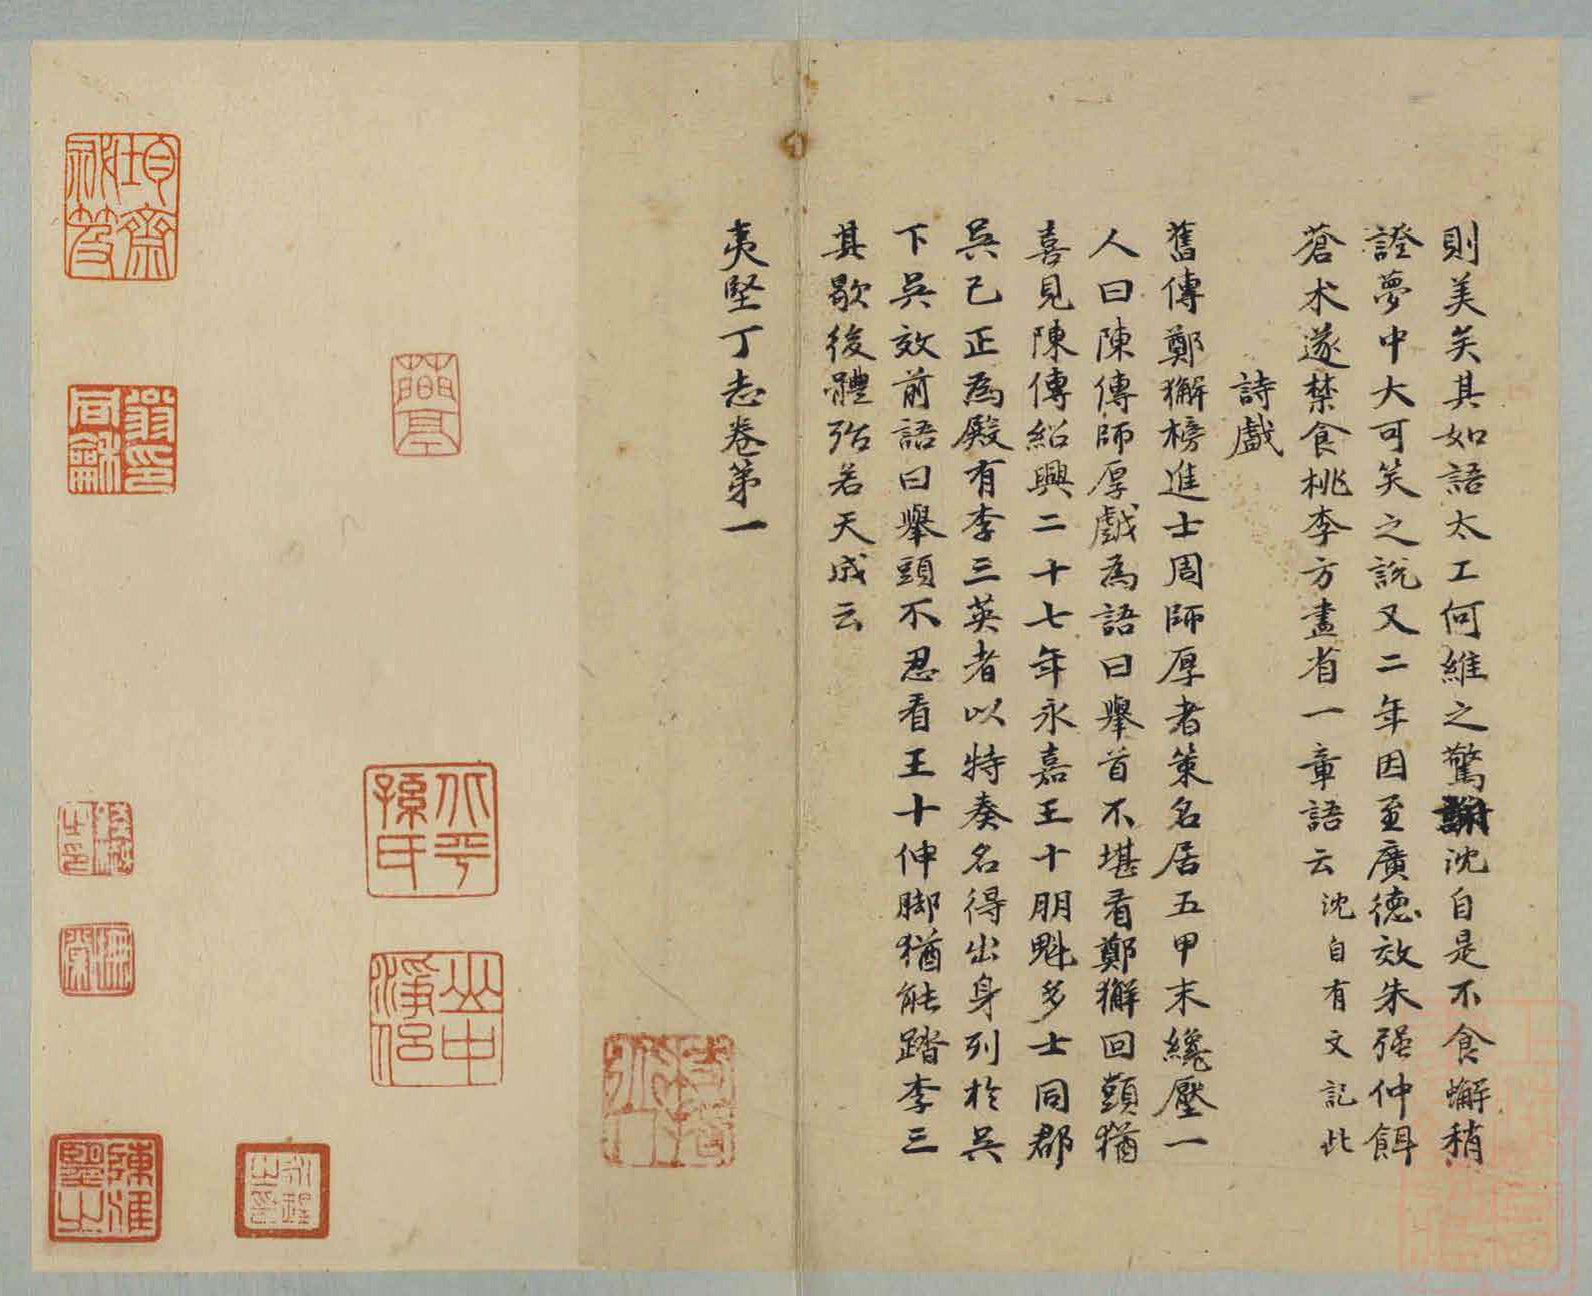 則美矣其如語太工何維之驚謝沈自是不食蠏稍
證夢中大可笑之說又二年因至廣德效朱强仲餌
蒼朮遂禁食桃李方盡省一章語云沈自有文記此
詩戲
舊傳鄭獬榜進士周師厚者策名居五甲末纔壓一
人曰陳傳師厚戲為語曰舉首不堪看鄭獬回頭猶
喜見陳傳紹興二十七年永嘉王十朋魁多士同郡
吳已正為殿有李三英者以特奏名得出身列於吳
下吳效前語曰舉頭不忍看王十伸脚猶能踏李三
其歇後體殆若天成云
夷堅丁志卷第一